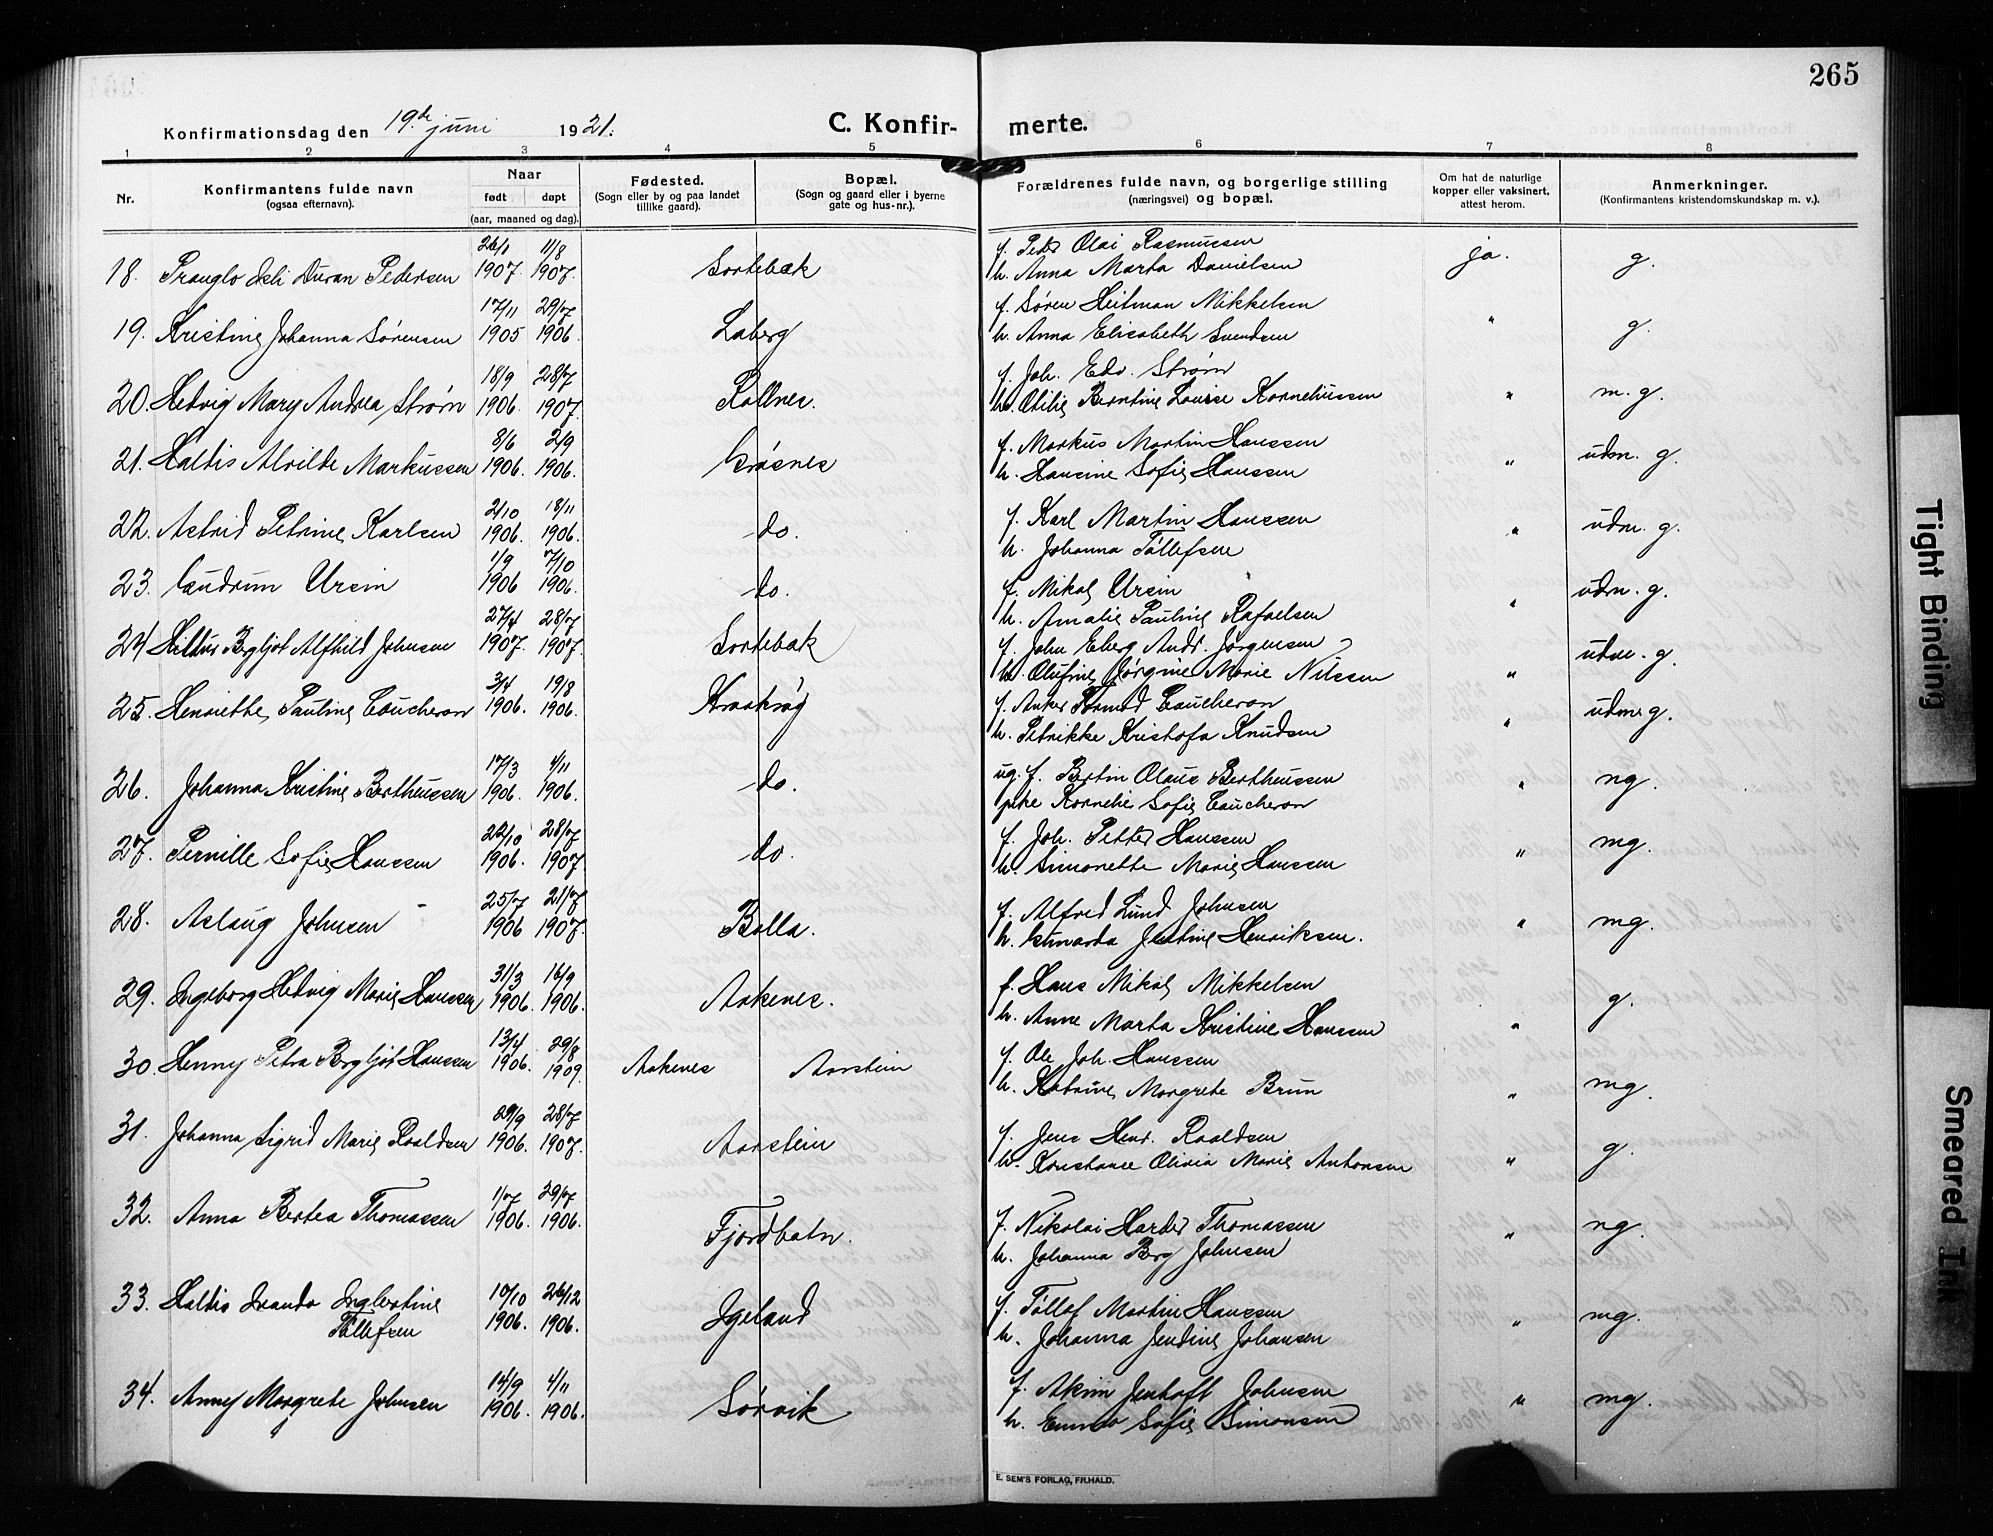 265
Konfirmationsdag den 19de juni 1921.
C. Konfirmerte.
1 2 3 4 5 6 7 8
Nr.
Konfirmantens fulde navn
(ogsaa efternavn).
Naar
født døpt
(aar, maaned og dag).
Fødested.
(Sogn eller by og paa landet
tillike gaard).
Bopæl.
(Sogn og gaard eller i byerne
gate og hus-nr.).
Forældrenes fulde navn, og borgerlige stilling
(næringsvei) og bopæl.
Om hat de naturlige
kopper eller vaksinert,
attest herom.
Anmerkninger.
(Konfirmantens kristendomskundskap m. v.).
26/1 11/8 f. Peder Olai Rasmussen
18. Duran Pedersen 1907. 1907. Sortebæk h. Anna Marta Danielsen ja. g.
17/11 29/7 f. Søren Heitman Mikkelsen
19. Kristine Johanna Sørensen 1905 1906. Laberg h. Anna Elisabeth Svendsen " g.
18/9 28/7 f. Joh. Edv. Strøm
20. Hedvig Mary Andrea Strøm 1906. 1907. Rollnes. h. Otilie Berntine Louise Korneliussen " m. g.
8/6 2/9 f. Markus Martin Hanssen
21. Haldis Alvilde Markussen 1906. 1906. Grøsnes h. Hansine Sofie Hanssen " udm. g.
2/10 18/11 f. Karl Martin Hanssen
22. Astrid Petrine Karlsen 1906. 1906. do. h. Johanna Tollefsen " udm. g.
1/9 7/10 f. Nikolai Ursin
23. Gudrun Ursin 1906 1906. do. h. Amalie Pauline Rafaelsen " udm. g.
27/4 28/7 f. John Eberg Andr. Jørgensen
24 Hildur Bergljot Alfhild Johnsen 1907. 1907. Sortebæk h. Olufine Jørgine Marie Nilssen " udm. g.
3/4 19/8 f. Anker Tormod Coucheron
25. Henriette Pauline Coucheron 1906. 1906. Kraakrøg h. Petrikke Kristofa Knudsen " udm. g.
17/3 4/11 ug. f. Bertin Olaus Bertheussen
26. Johanna Kristine Bertheussen 1906. 1906. do. pike Kornelie Sofie Coucheron " ng.
22/10 28/7 f. Joh. Petter Hanssen
27. Pernille Sofie Hanssen 1906. 1907 do. h. Simonette Marie Hanssen " mg.
25/7 21/7 f. Alfred Lund Johnsen
28. Aslaug Johnsen 1906 1907. Bolla. h. Jentine Henriksen. " mg.
31/3 16/9 f. Hans Nikolai Mikkelsen
29. Ingeborg Hedvig Marie Hanssen 1906. 1906. Aakenes. h. Anne Marta Kristine Hanssen " g.
13/4 29/8 f. Ole Joh. Hanssen
30. Henny Petra Bergljot Hanssen 1906. 1909. Aakenes Aarstein h. Katrine Margrete Brun " mg.
29/9 28/7 f. Jens Henr. Roaldsen
31. Johanna Sigrid Marie Roaldsen 1906. 1907. Aarstein h. Konstance Olivia Marie Antonsen " g.
1/7 29/7 f. Nikolai Harder Thomassen
32. Anna Bertea Thomassen 1906. 1906. Fjordbotn. h. Johanna Berg Johnsen " ng.
10/10 26/12 f. Tollef Martin Hanssen
33. Haldis Ingbertine 1906. 1906. Igeland h. Johanna Jendine Johansen " mg.
Tollefsen
14/9 4/11 f. Akim Jenhoft Johnsen
34. Anny Margrete Johnsen 1906. 1906. Sørvik h. Emma Sofie Simonsen " mg.
E. SEM'S FORLAG, FR.HALD.
Tight Binding
Smeared Ink